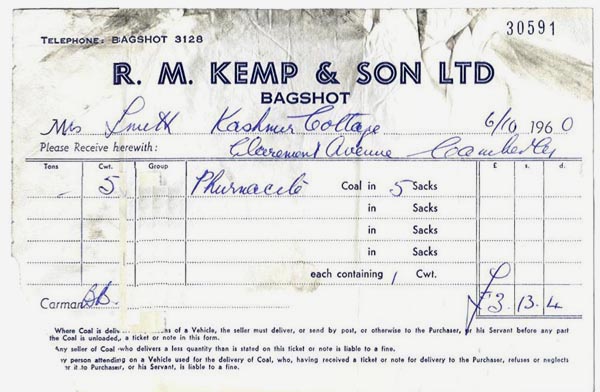 30591
TELEPHONE: BAGSHOT 3128
R. M. KEMP & SON LTD
BAGSHOT
Mrs Smith Kashmir Cottage 6/10 1960
Please Receive herewith: Claremont Avenue Camberley
Tons Cwt. Group £ s. d.
5 Phurnacite Coal in 5 Sacks
in Sacks
in Sacks
in Sacks
each containing 1 Cwt.
Carman BB. £3. 13. 4
Where Coal is of a Vehicle, the seller must deliver, or send by post, or otherwise to the Purchaser, or his Servant before any part
the Coal is unloaded, a ticket or note in this form.
Any seller of Coal who delivers a less quantity than is stated on this ticket or note is liable to a fine.
person attending on a Vehicle used for the delivery of Coal, who, having received a ticket or note for delivery to the Purchaser, refuses or neglects
it to Purchaser, or his Servant, is liable to a fine.